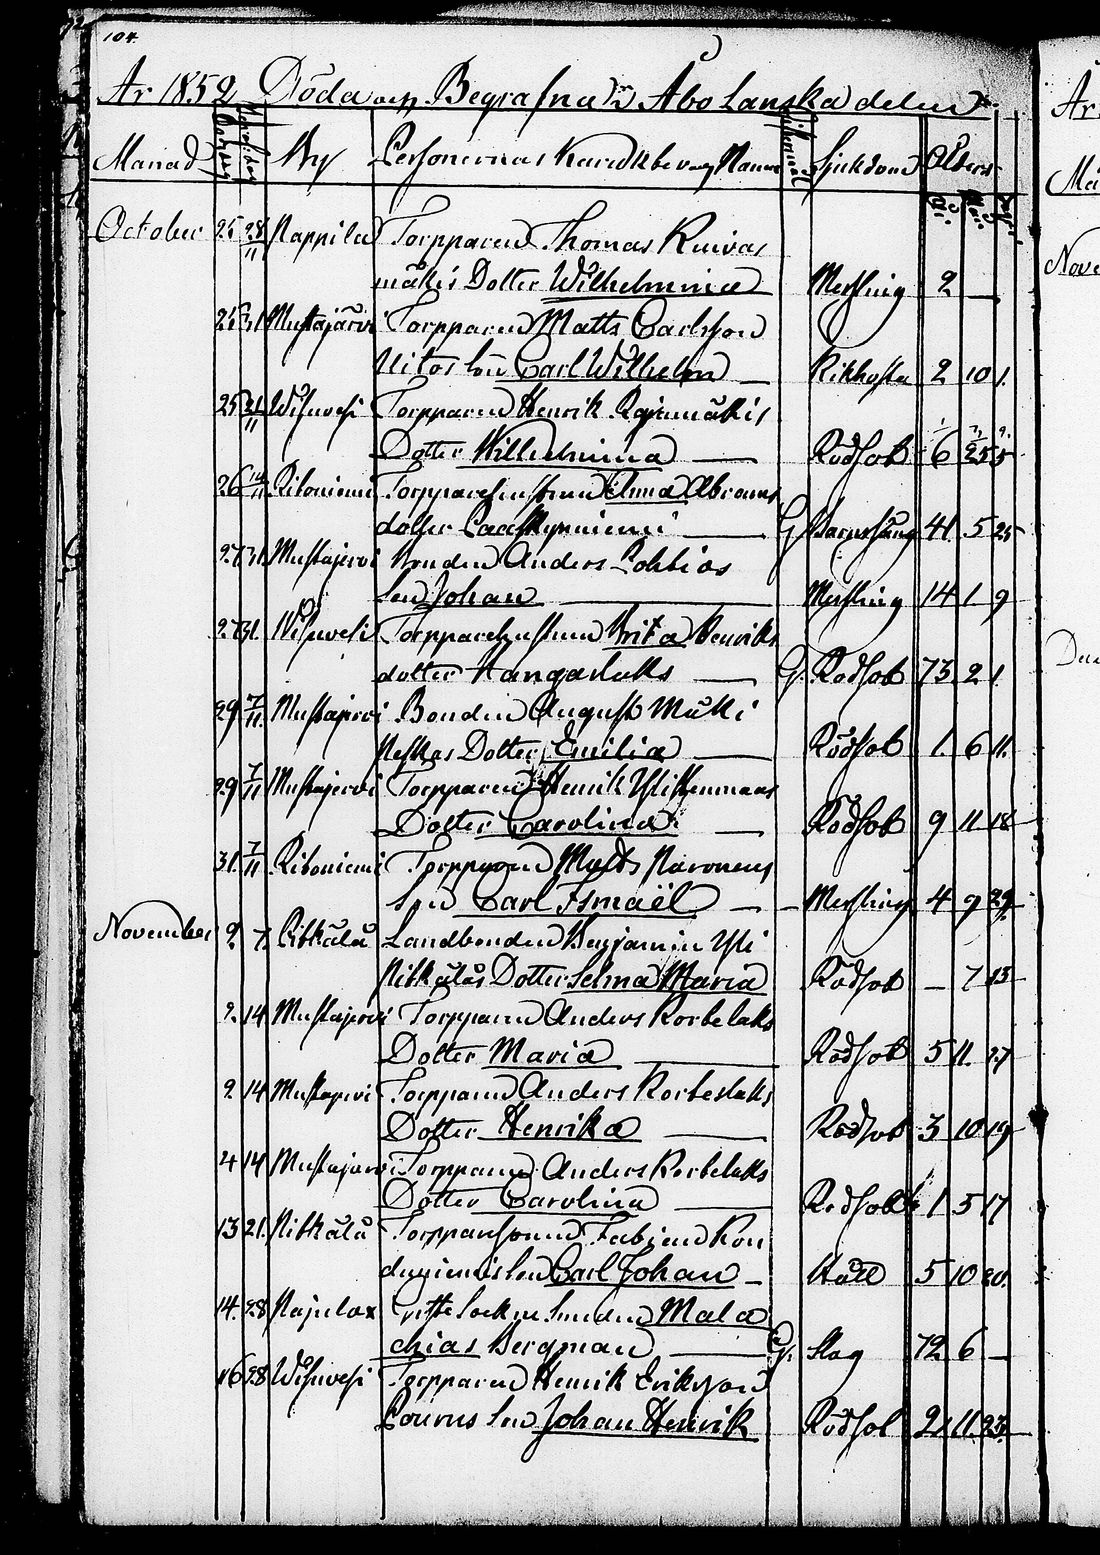 104.
År 1852 Döda och Begrafna i Åbo Länska delen
Månad By Personernas Namn Sjukdom Ålder
October 25 28/11 Nappila Torpparen Thomas Kuivas
mäkis Dotter Wilhelmina Messling 2 —
25 31 Mustajärvi Torpparen Matts Carlsson
Uitos son Carl Wilhelm Kikhosta 2 10 1.
25 Wihuvesi Torpparen Henrik Rajamäkis
Dotter Wilhelmina Rödsot 6
26 Ritoniemi Torpparehustrun Anna Abrams
dotter G Barnsäng 41 5 25
27 31 Mustajervi Bonden Anders
Son Johan Messling 14 1 9
27 31. Wihuvesi Torpparehustrun Brita Henriks
dotter Kangarlaks G. Rödsot 73. 2 1.
29 7/11. Mustajervi Bonden August Mäki
Dotter Emilia Rödsot 1. 6 11.
29 7/11 Mustajervi Torpparen Henrik
Dotter Carolina Rödsot 9 11 18
31. 7/11 Ritoniemi Torpparen Matts Naronens
Son Carl Ismaël Messling 4 9 29.
November 2 7. Pitkälä Landbonden Benjamin Yli
Pitkäläs Dotter Selma Maria Rödsot — 7 13
2. 14 Mustajervi Torpparen Anders Korbelaks
Dotter Maria Rödsot 5 11. 27
2 14 Mustajervi Torpparen Anders Korbelaks
Dotter Henrika Rödsot 3 10 19
4 14 Mustajärvi Torpparen Anders Korbelaks
Dotter Carolina Rödsot 1 5 17
13 21. Pitkälä Torpparsonen Fabian Kon
son Carl Johan Håll 5 10 20.
14. 28 Pajulax Mala
chias Bergman G. Slag 72 6 —
16 28 Wihuvesi Torpparen Henrik Eriksson
Lourus Son Johan Henrik Rödsot 2 11. 23.